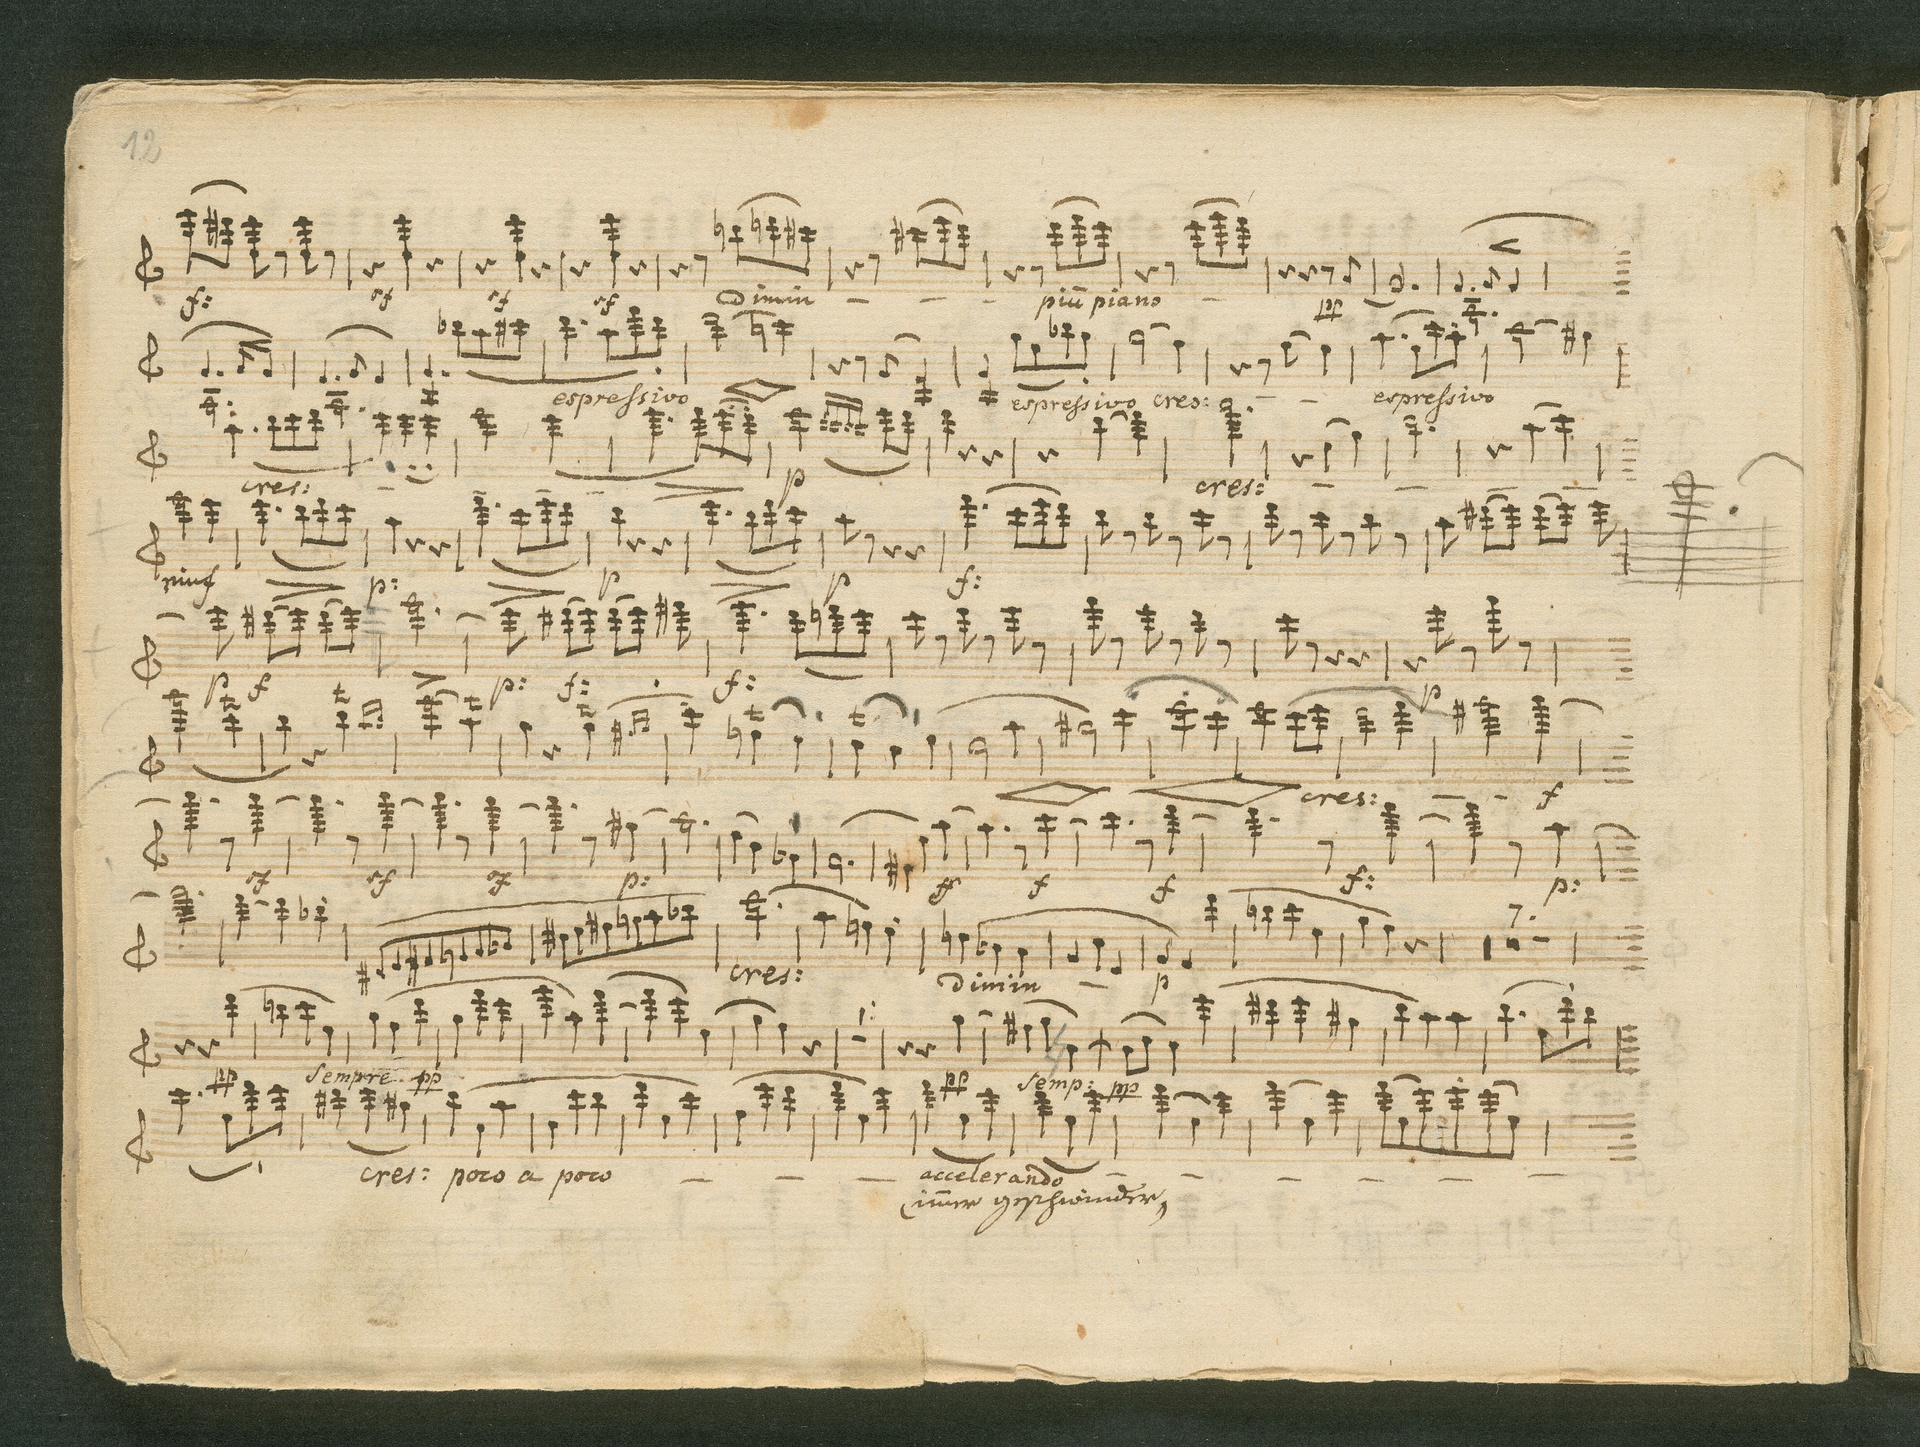 12
f: sf sf sf Dimin più piano pp
espressivo espressivo cres: espressivo
cres: p cres:
rinf p: p p f:
p f p: f: f: p
cres: f
sf sf sf p: sf f f f: p:
7.
cres: Dimin p
1:
pp sempre pp pp semp: pp
cres: poco a poco accelerando
(immer geschwinder,